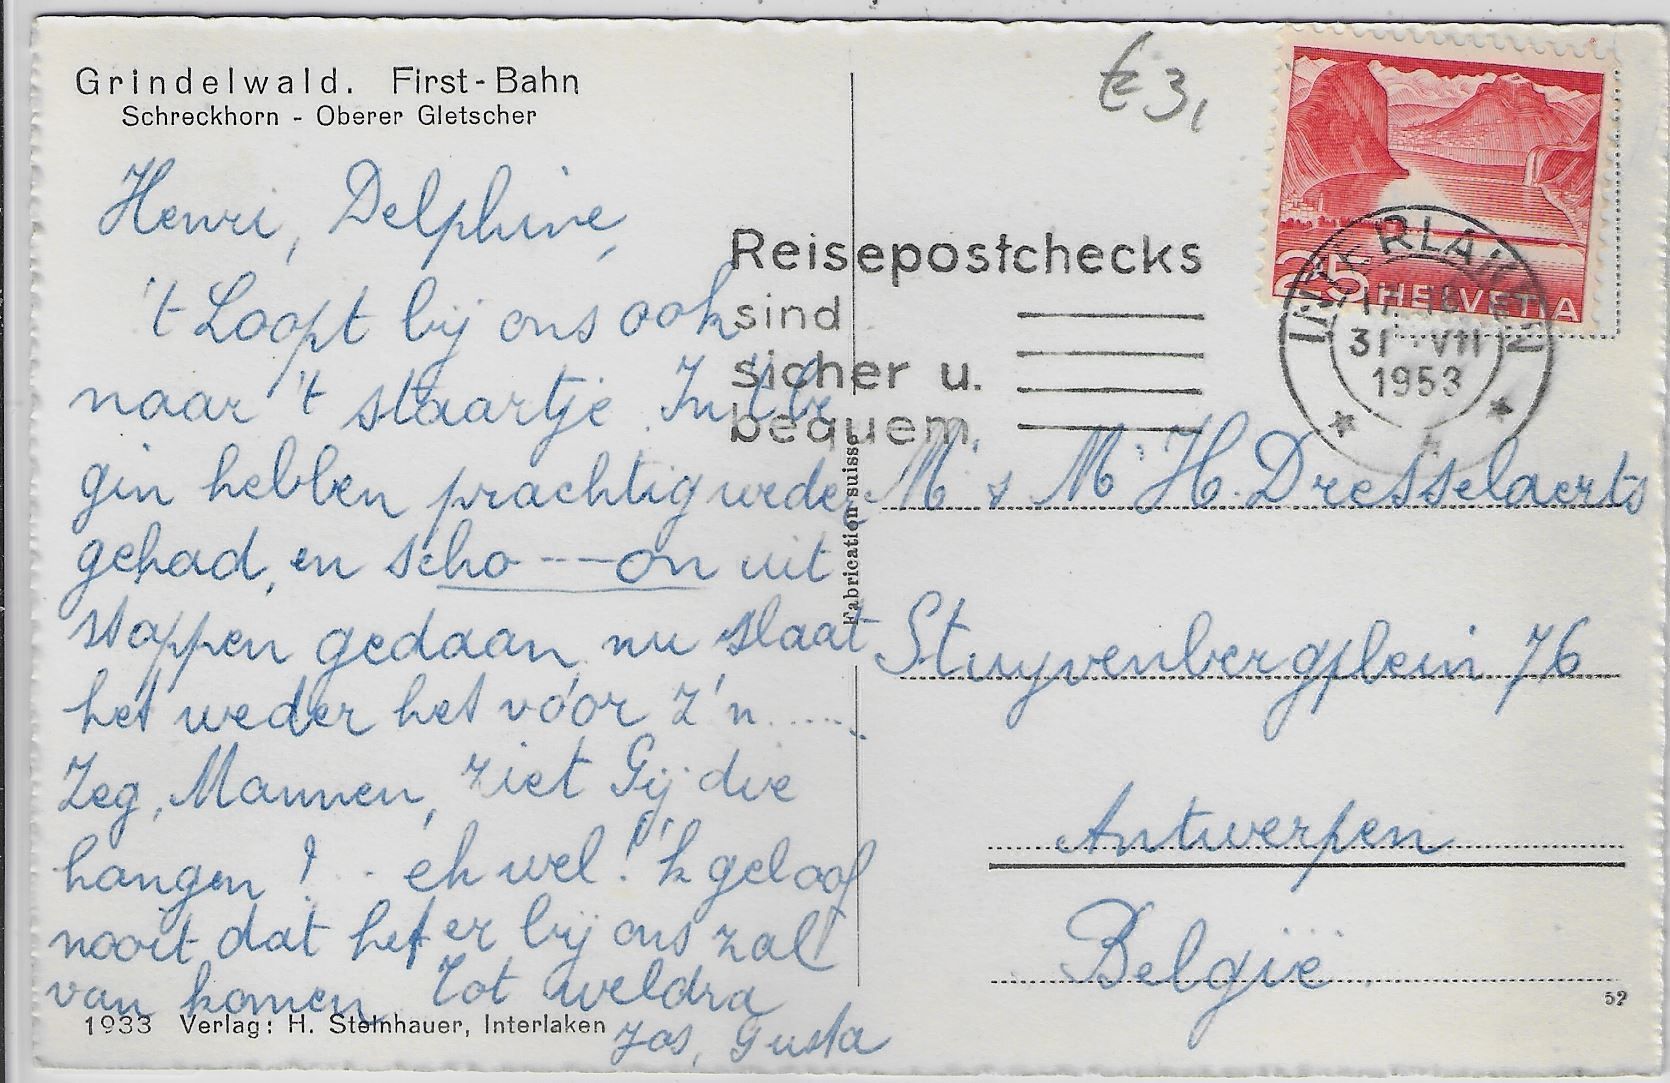 Grindelwald. First-Bahn
Schreckhorn - Oberer Gletscher
Henri, Delphine,
't Loopt bij ons ook
naar 't staartje. In 't be
gin hebben prachtig weder
gehad, en scho----on uit
stappen gedaan, nu slaat
het weder het vóór z'n.....
Zeg, Mannen, ziet Gij die
hangen! .. eh wel! 'k geloof
nooit dat het er bij ons zal
van komen. Tot weldra
Jos, Gusta
1933 Verlag: H. Steinhauer, Interlaken
Fabrication suisse
€ 3,
Reisepostchecks
sind
sicher u.
bequem
25 HELVETIA
INTERLAKEN
31 VII
1953
Mr & Mr H. Dresselaerts
Stuyvenbergplein 76
Antwerpen
België
52